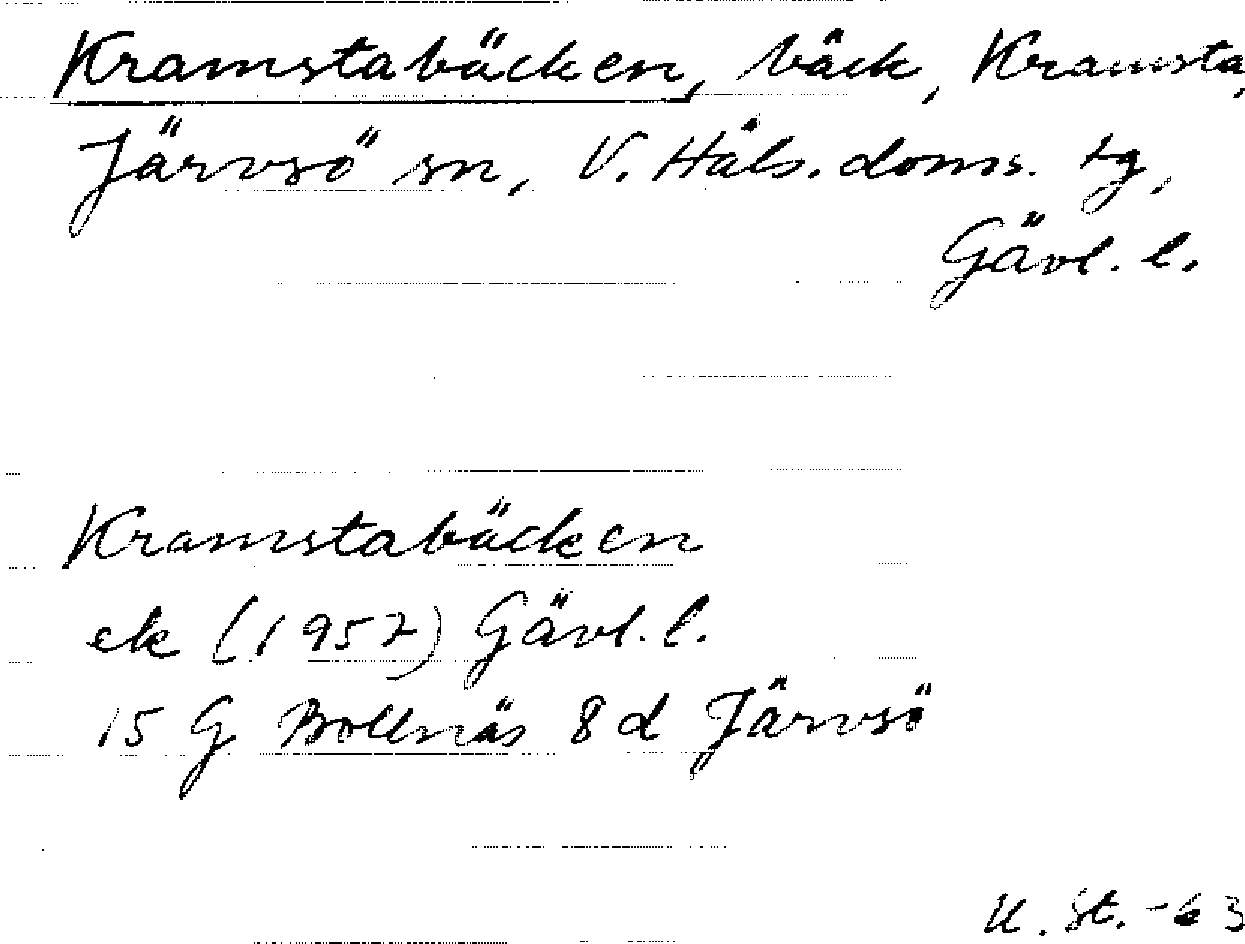 Kramstabäcken, bäck, Kramsta,
Järvsö sn, V. Häls. doms. tg,
Gävl. l.
Kramstabäcken
ek (1957) Gävl. l.
15 G Bollnäs 8 d Järvsö
U. St. -63